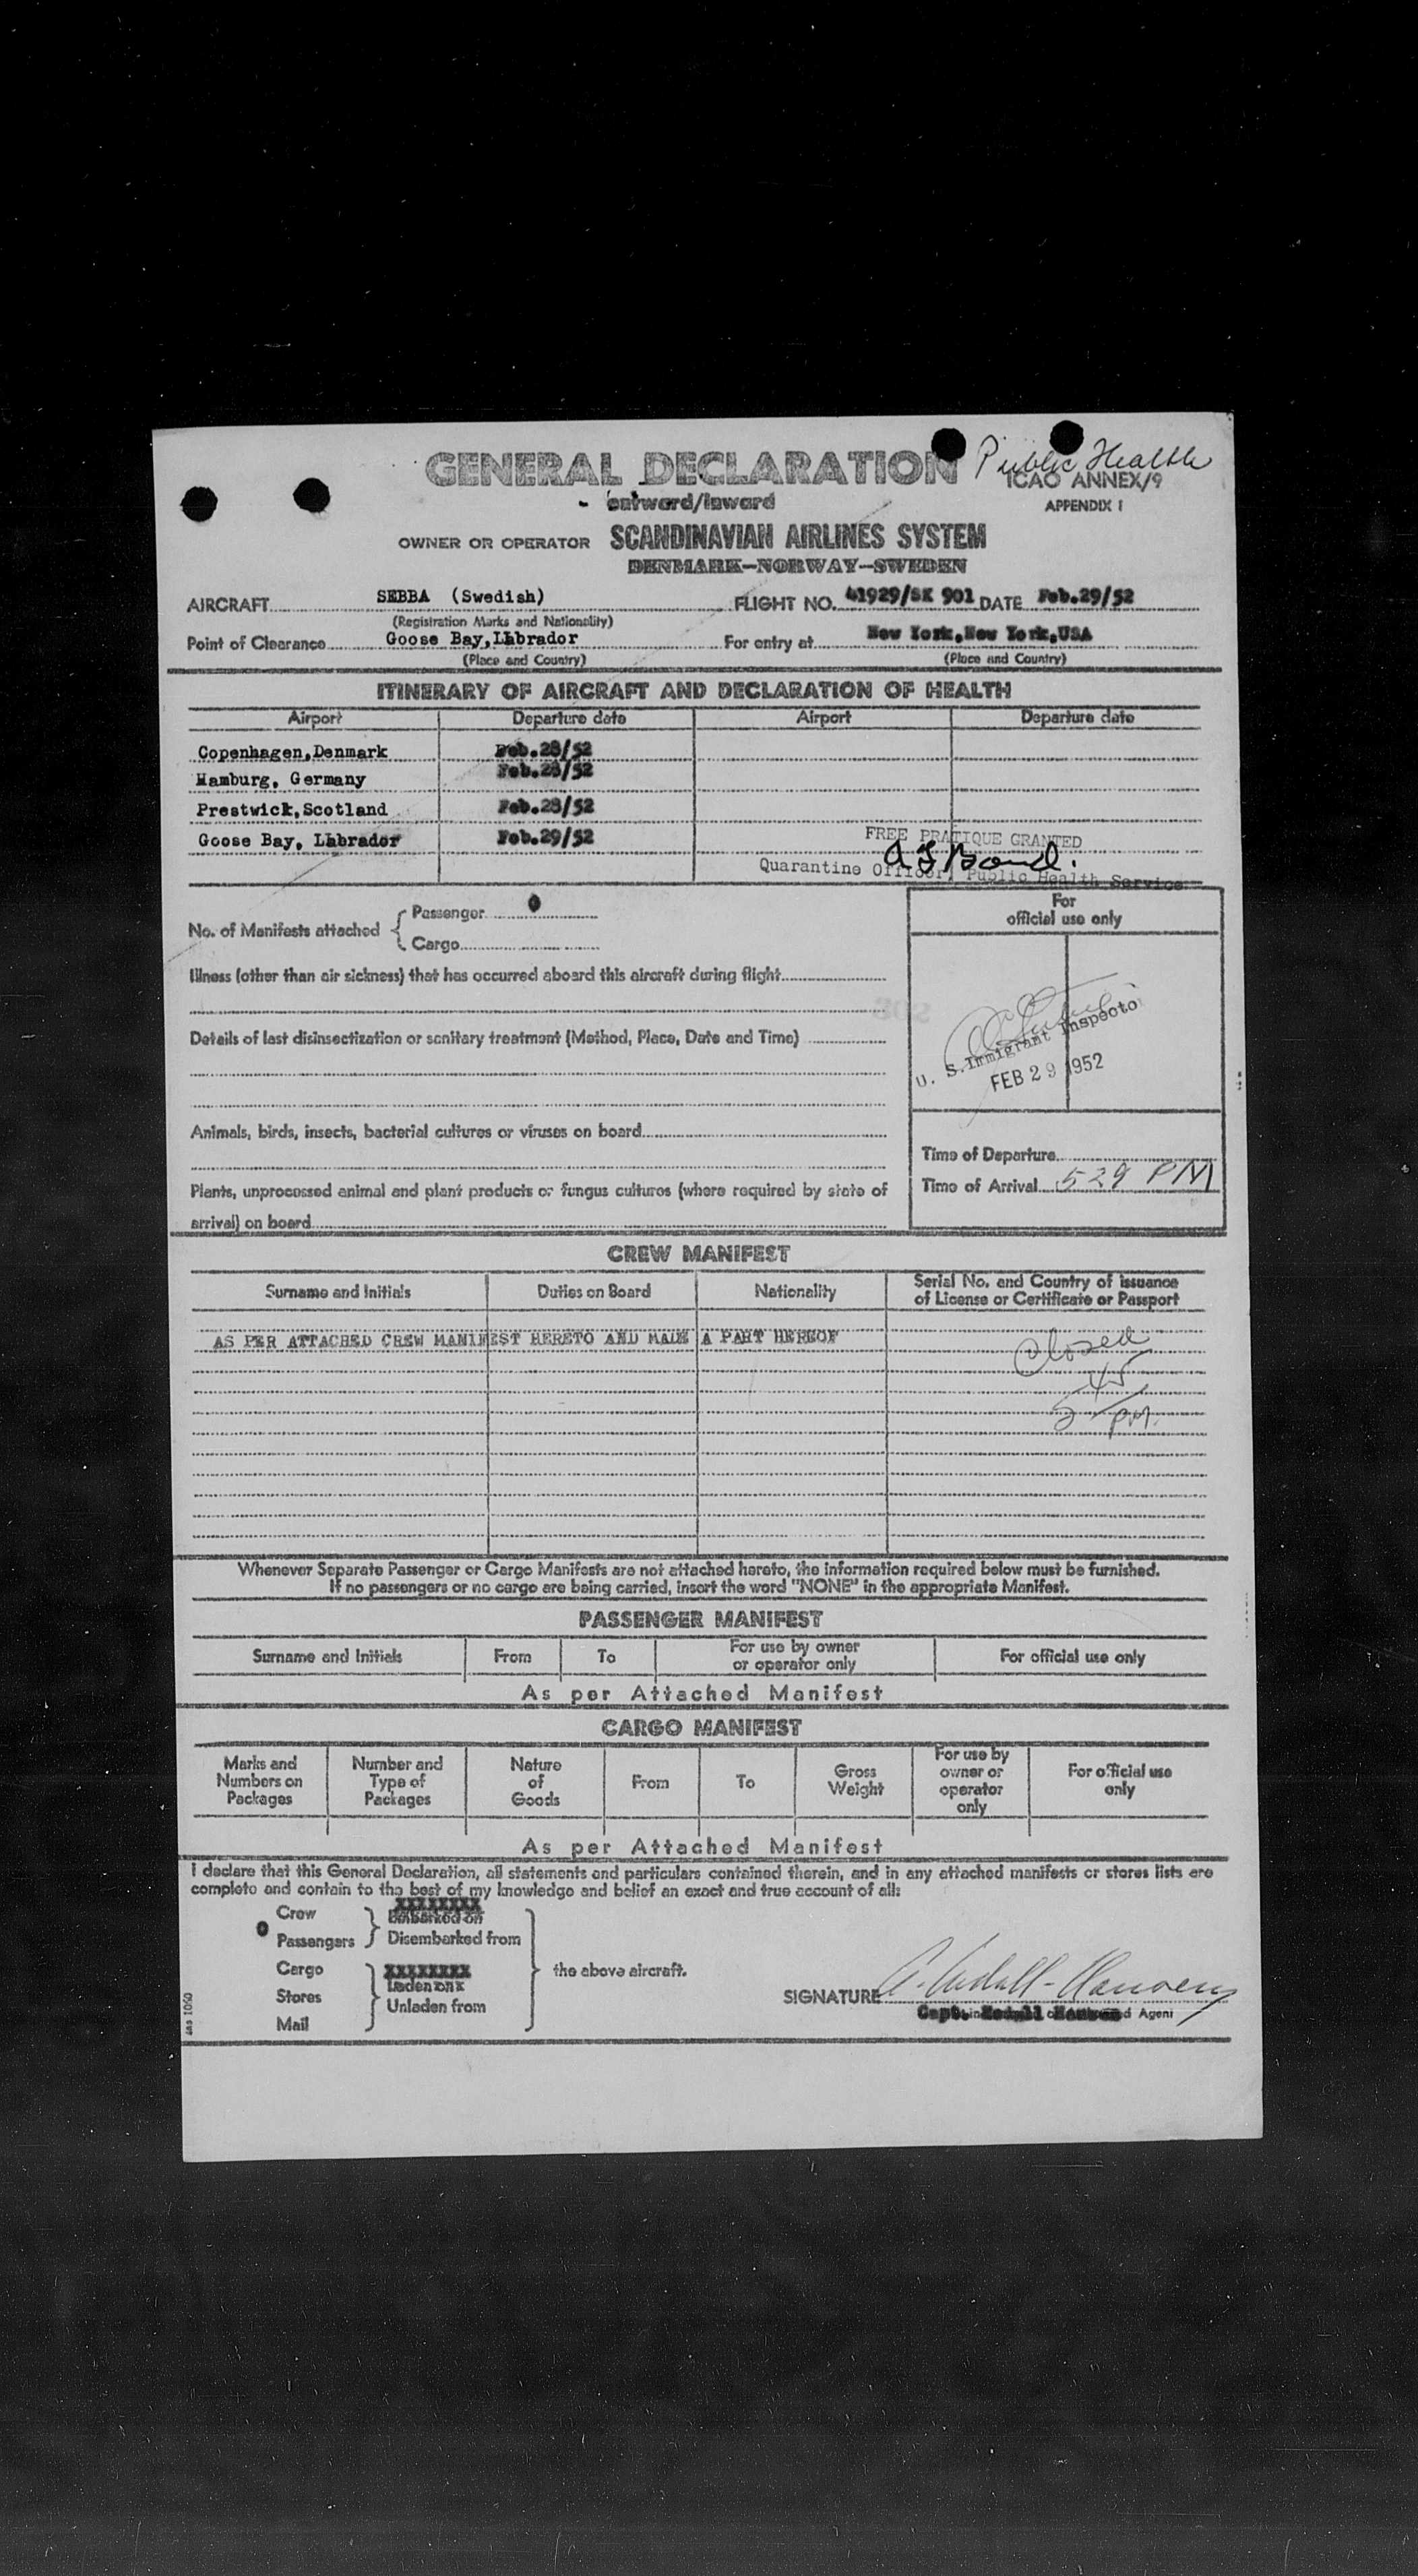 GENERAL DECLARATION
Public Health
ICAO ANNEX/9
APPENDIX 1
outward/inward
OWNER OR OPERATOR SCANDINAVIAN AIRLINES SYSTEM
DENMARK—NORWAY—SWEDEN
AIRCRAFT SEBBA (Swedish) FLIGHT NO. 41929/SK 901 DATE Feb.29/52
(Registration Marks and Nationality)
Point of Clearance Goose Bay, Labrador For entry at New York, New York, USA
(Place and Country) (Place and Country)
ITINERARY OF AIRCRAFT AND DECLARATION OF HEALTH
Airport Departure date Airport Departure date
Copenhagen, Denmark Feb.28/52
Hamburg, Germany Feb.28/52
Prestwick, Scotland Feb.28/52
Goose Bay, Labrador Feb.29/52
FREE PRATIQUE GRANTED
Quarantine Officer, Public Health Service
No. of Manifests attached { Passenger 0
Cargo
For
official use only
Illness (other than air sickness) that has occurred aboard this aircraft during flight
Details of last disinsectization or sanitary treatment (Method, Place, Date and Time)
U. S. Immigrant Inspector
FEB 29 1952
Animals, birds, insects, bacterial cultures or viruses on board
Plants, unprocessed animal and plant products or fungus cultures (where required by state of
arrival) on board
Time of Departure
Time of Arrival 529 PM
CREW MANIFEST
Surname and Initials Duties on Board Nationality Serial No. and Country of issuance
of License or Certificate or Passport
AS PER ATTACHED CREW MANIFEST HERETO AND MADE A PART HEREOF
Closed
5 45 PM.
Whenever Separate Passenger or Cargo Manifests are not attached hereto, the information required below must be furnished.
If no passengers or no cargo are being carried, insert the word "NONE" in the appropriate Manifest.
PASSENGER MANIFEST
Surname and Initials From To For use by owner
or operator only For official use only
As per Attached Manifest
CARGO MANIFEST
Marks and
Numbers on
Packages Number and
Type of
Packages Nature
of
Goods From To Gross
Weight For use by
owner or
operator
only For official use
only
As per Attached Manifest
I declare that this General Declaration, all statements and particulars contained therein, and in any attached manifests or stores lists are
complete and contain to the best of my knowledge and belief an exact and true account of all:
0 Crew
Passengers } XXXXXXXX
Embarked on
Disembarked from
Cargo
Stores
Mail } XXXXXXXX
Laden on
Unladen from
} the above aircraft.
SIGNATURE
Capt. Hansen
Agent
sas 1060